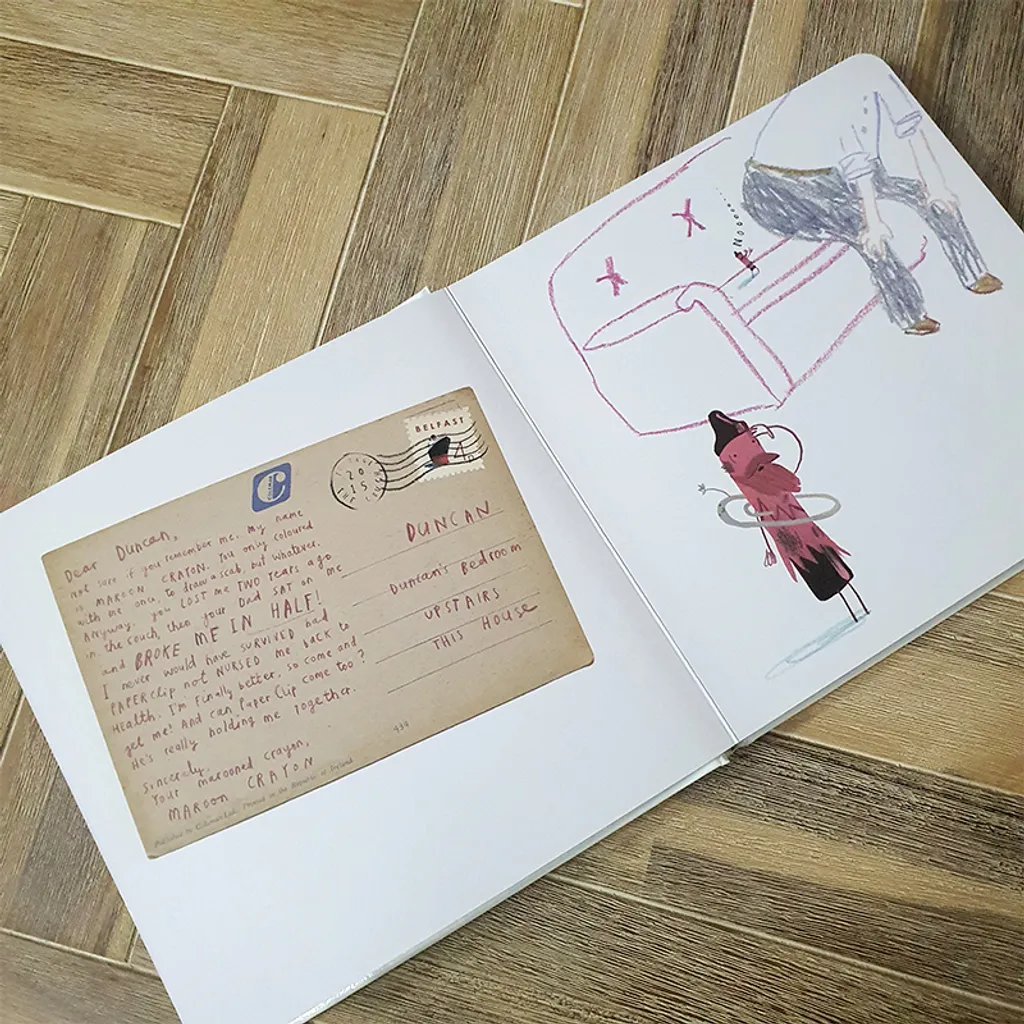 Dear Duncan,
not sure if you remember me. My name
is MAROON CRAYON. You only coloured
with me once, to draw a scab, but whatever.
Anyway, you LOST me TWO Years ago
in the couch, then your Dad SAT on me
and BROKE ME IN HALF!
I never would have SURVIVED had
PAPERClip not NURSED me back to
Health. I'm Finally better, so come and
get me! And can Paper Clip come too?
He's really holding me Together.
Sincerely,
Your marooned crayon,
MAROON CRAYON
COLEMAN
2015
BELFAST
DUNCAN
Duncan's Bedroom
UPSTAIRS
THIS HOUSE
439
Published by Coleman Ltd. Printed in the Republic of Ireland
Nooooo